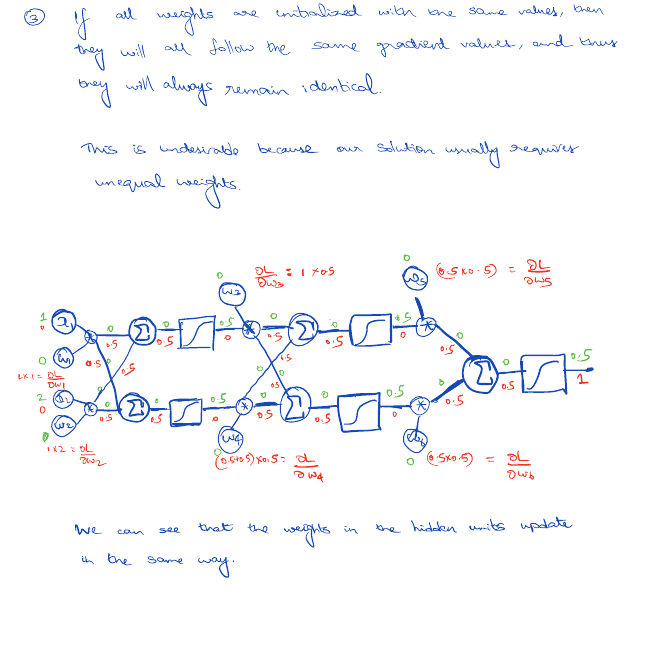 ③ If all weights are initialized with the same values, then
they will all follow the same gradient values, and thus
they will always remain identical.
This is undesirable because our solution usually requires
unequal weights.
0 ∂L/∂w3 = 1 x 0.5
0 (0.5 x 0.5) = ∂L/∂w5
w3 w5
1 x1 0 Σ 0 0.5 * 0 Σ 0 0.5 * 0
0 * 0.5 0.5 0 0.5 0.5 0 0.5
0 w1 0.5 0 0.5 0.5 Σ 0 0.5
1 x 1 = ∂L/∂w1 0.5 1
2 x2 0 Σ 0 0.5 * 0 Σ 0 0.5 * 0
0 * 0.5 0.5 0 0.5 0.5 0 0.5
0 w2 w4 w6
1 x 2 = ∂L/∂w2
0 (0.5+0.5) x 0.5 = ∂L/∂w4
0 (0.5 x 0.5) = ∂L/∂w6
We can see that the weights in the hidden units update
in the same way.